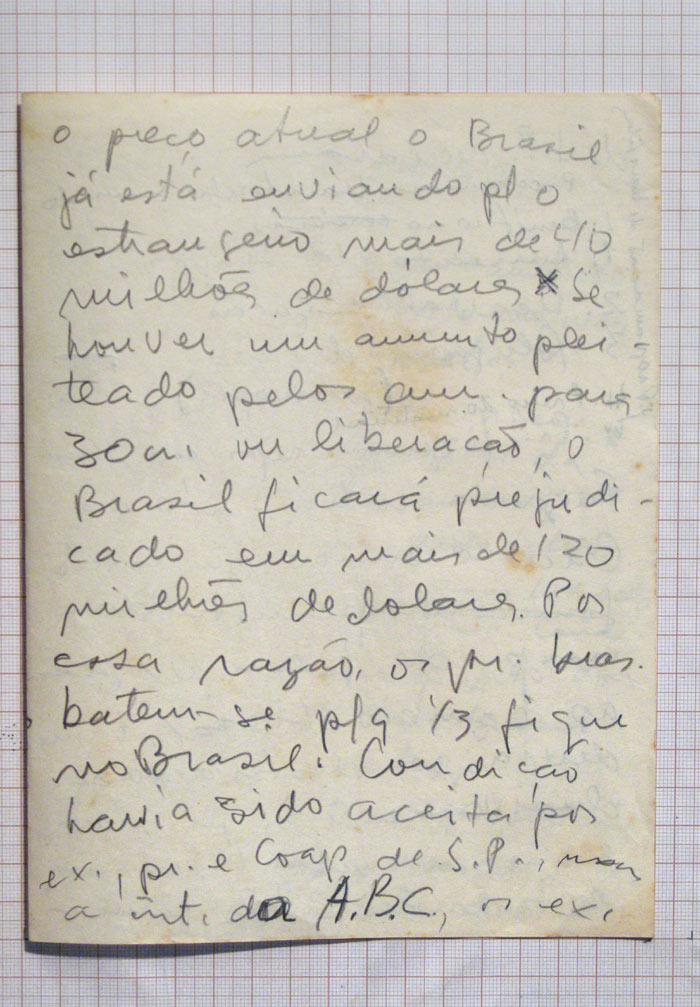 o preço atual o Brasil
já está enviando p/ o
estrangeiro mais de 40
milhões de dólares Se
houver um aumento plei-
teado pelos am. para
30cr. ou liberação, o
Brasil ficará prejudi-
cado em mais de 120
milhões de dolares. Por
essa razão, os pr. bras.
batem-se p/q 1/3 fique
no Brasil. Condição
havia sido aceita por
ex., pr. e Coap de S.P., mas
a int. da A.B.C., os ex.